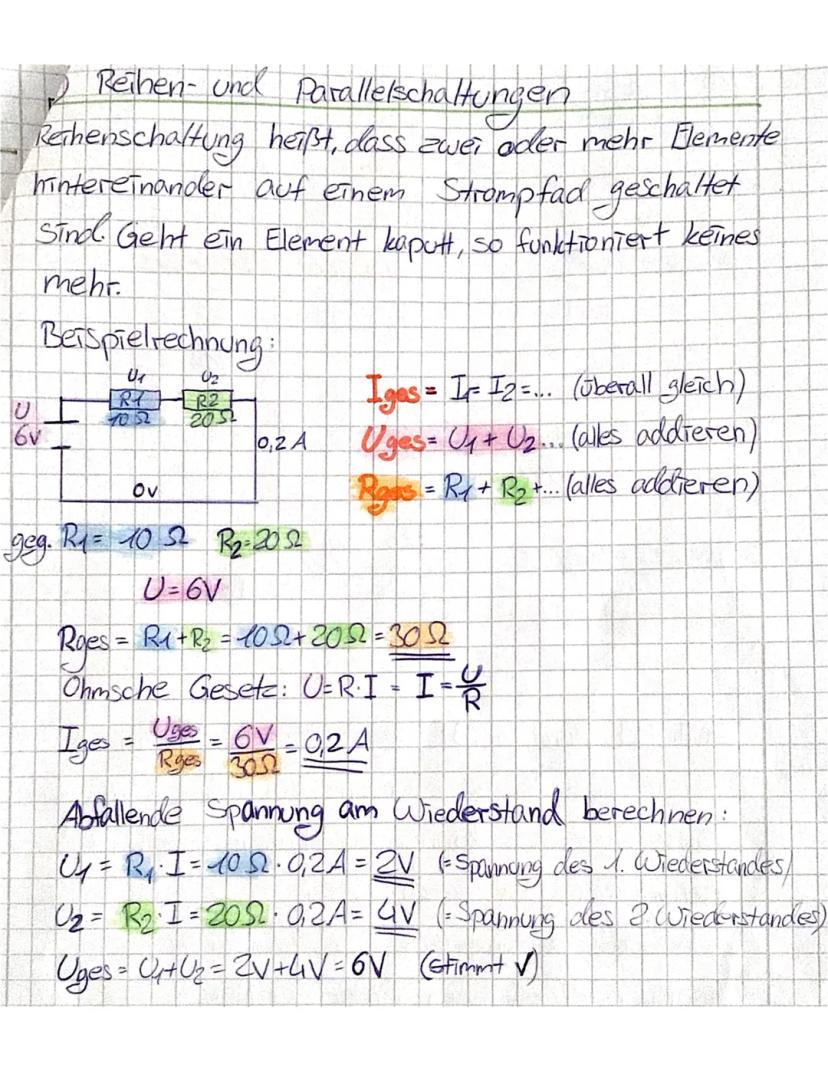 Reihen- und Parallelschaltungen
Reihenschaltung heißt, dass zwei oder mehr Elemente
hintereinander auf einem Strompfad geschaltet
sind. Geht ein Element kaputt, so funktioniert keines
mehr.
Beispielrechnung:
U1 U2
R1 R2
10Ω 20Ω
U
6V
0,2A
0V
Iges = I1= I2=... (überall gleich)
Uges= U1+U2... (alles addieren)
Rges = R1+R2+... (alles addieren)
geg. R1= 10Ω R2=20Ω
U=6V
Rges = R1+R2 = 10Ω+20Ω = 30Ω
Ohmsche Gesetz: U=R·I = I=U/R
Iges = Uges/Rges = 6V/30Ω = 0,2A
Abfallende Spannung am Wiederstand berechnen:
U1 = R1·I = 10Ω·0,2A = 2V (=Spannung des 1. Wiederstandes)
U2 = R2·I = 20Ω·0,2A = 4V (=Spannung des 2. Wiederstandes)
Uges = U1+U2 = 2V+4V = 6V (stimmt ✓)